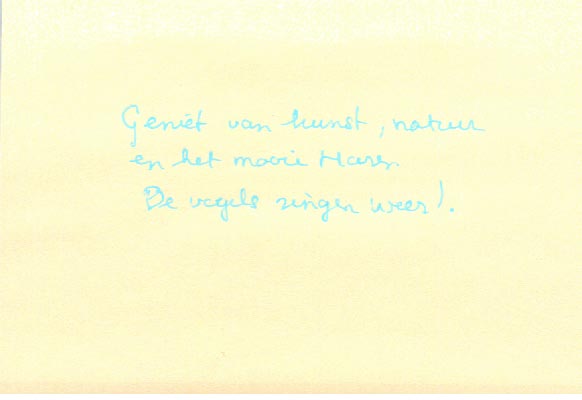 Geniet van kunst, natuur
en het mooie Haren.
De vogels zingen weer!.